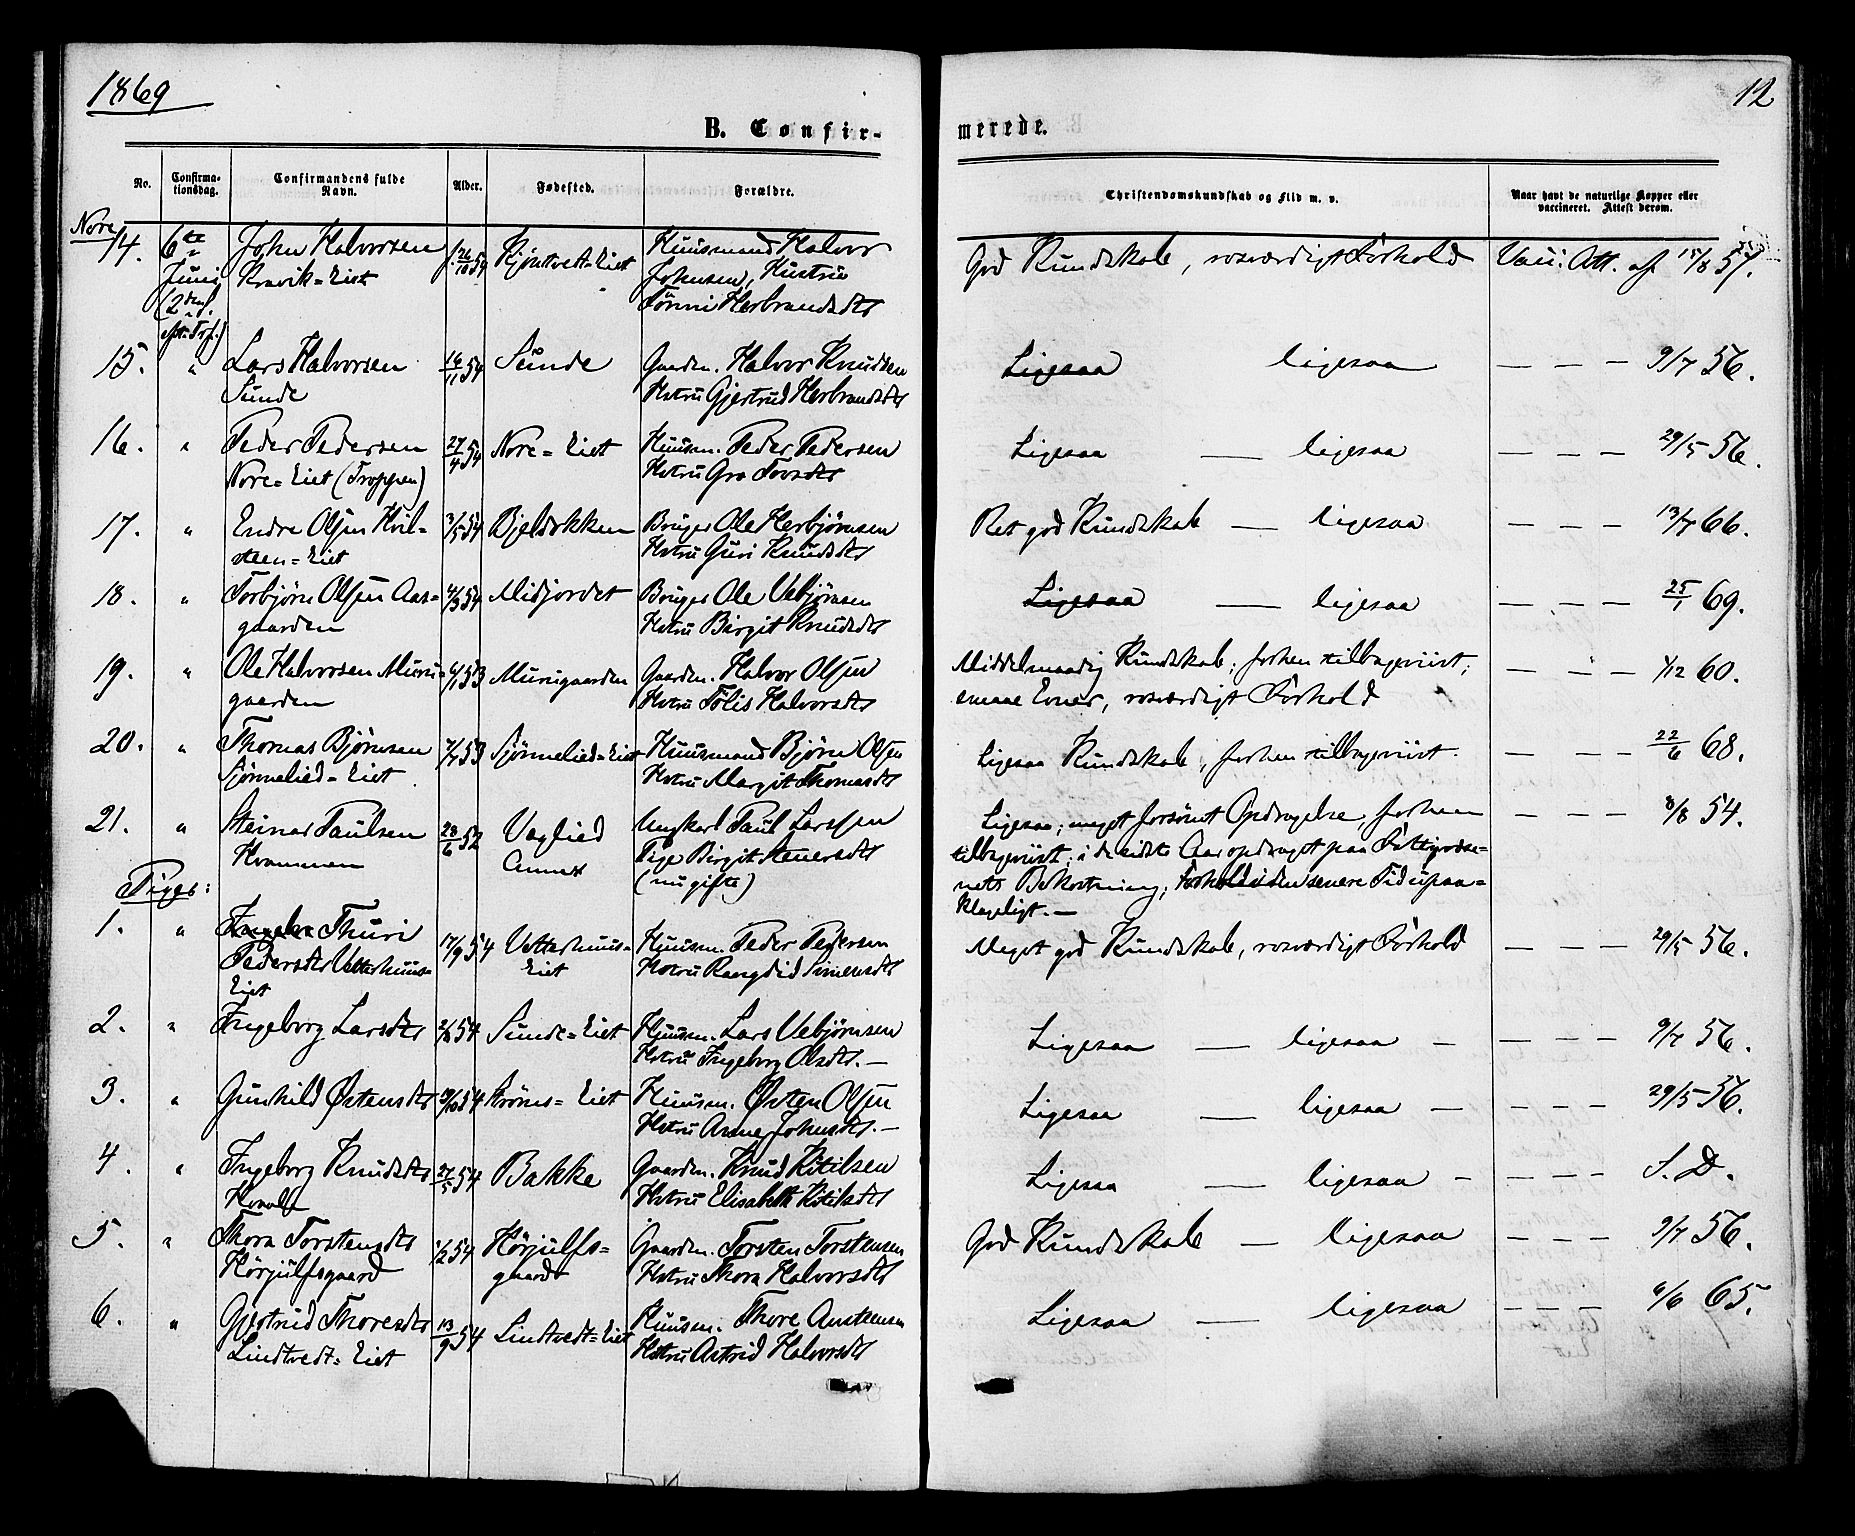 1869
12
B. Confir-
merede.
No.
Confirma-
tionsdag.
Confirmandens fulde
Navn.
Alder.
Fødested.
Forældre.
Christendomskundskab og Flid m. v.
Naar havt de naturlige Kopper eller
vaccineret. Attest derom.
Nore
14. 6te John Halvorsen f. 26/10 54 Kjøntvedt=Eiet Huusmand Halvor God Kundskab, rosværdigt Forhold Vacc. Att. af 15/8 57.
Juni Kravik=Eiet Johnsen, Hustru
(2den S. Tønni Herbrandsdtr
eft. Tref.)
15. " Lars Halvorsen 16/11 54 Sunde Gaardm. Halvor Knudsen Ligesaa ligesaa — — — 9/7 56.
Sunde Hstru Gjertrud Herbrandsdtr
16. " Peder Pedersen 27/4 54 Nore=Eiet Huusm. Peder Pedersen Ligesaa — ligesaa — — — 29/5 56.
Nore=Eiet (Troppen) Hstru Gro Tovsdtr
17. " Endre Olsen Hvil- 3/5 54 Bjeldokken Bruger Ole Herbjørnsen Ret god Kundskab — ligesaa — — — 13/7 66.
steen=Eiet Hstru Guri Knudsdtr
18. " Torbjørn Olsen Aas= 4/3 54 Midjordet Bruger Ole Vebjørnsen Ligesaa — ligesaa — — — 25/1 69.
gaarden Hstru Birgit Knudsdtr
19. " Ole Halvorsen Muru= 6/1 53 Murugaarden Gaardm. Halvor Olsen Middelmaadig Kundskab; forhen tilbageviist; — " — 1/12 60.
gaarden Hstru Tølis Halvorsdtr smaae Evner, rosværdigt Forhold
20. " Thomas Bjørnsen 7/7 53 Sjønnelied=Eiet Huusmand Bjørn Olsen Ligesaa Kundskab, forhen tilbageviist. — — — 22/6 68.
Sjønnelied=Eiet Hstru Margit Thomasdtr
21. " Steinar Paulsen 28/6 52 Vaglied Ungkarl Paul Larssen Ligesaa; meget forsømt Opdragelse, forhen 8/8 54.
Kvammen Annex Pige Birgit Steinersdtr tilbageviist; i de sidste Aar opdraget paa Fattigvæse=
(nu gifte) nets Bekostning; Forhold i den senere Tid upaa=
klageligt. —
Piger:
1. " Thuri 17/9 54 Vetterhuus= Huusm. Peder Pedersen Meget god Kundskab, rosværdigt Forhold — — — 29/5 56.
Pedersdtr Vetterhuus= Eiet Hstru Rangdid Simensdtr
Eiet
2. " Ingeborg Larsdtr 54 Sunde=Eiet Huusm. Lars Vebjørnsen Ligesaa — ligesaa — — — — 9/7 56.
Hstru Ingeborg Olsdtr. —
3. " Gunhild Østensdtr 54 Strøms=Eiet Huusm. Østen Olsen Ligesaa — ligesaa — — — — 29/5 56.
Hstru Anne Johnsdtr. —
4. " Ingeborg Knudsdtr 27/5 54 Bakke Gaardm. Knud Kitilsen Ligesaa — ligesaa — — — — S. D.
Hvaale Hstru Elisabeth Kitilsdtr
5. " Thora Torstensdtr 1/2 54 Hørjulfs= Gaardm. Torsten Torstensen God Kundskab — ligesaa — — — 9/7 56.
Hørjulfsgaard gaard Hstru Thora Halvorsdtr
6. " Gjertrud Thoresdtr 13/9 54 Lindtvedt=Eiet Huusm. Thore Anstensen Ligesaa — ligesaa — — — 6/6 65.
Lindtvedt=Eiet Hstru Astrid Halvorsdtr